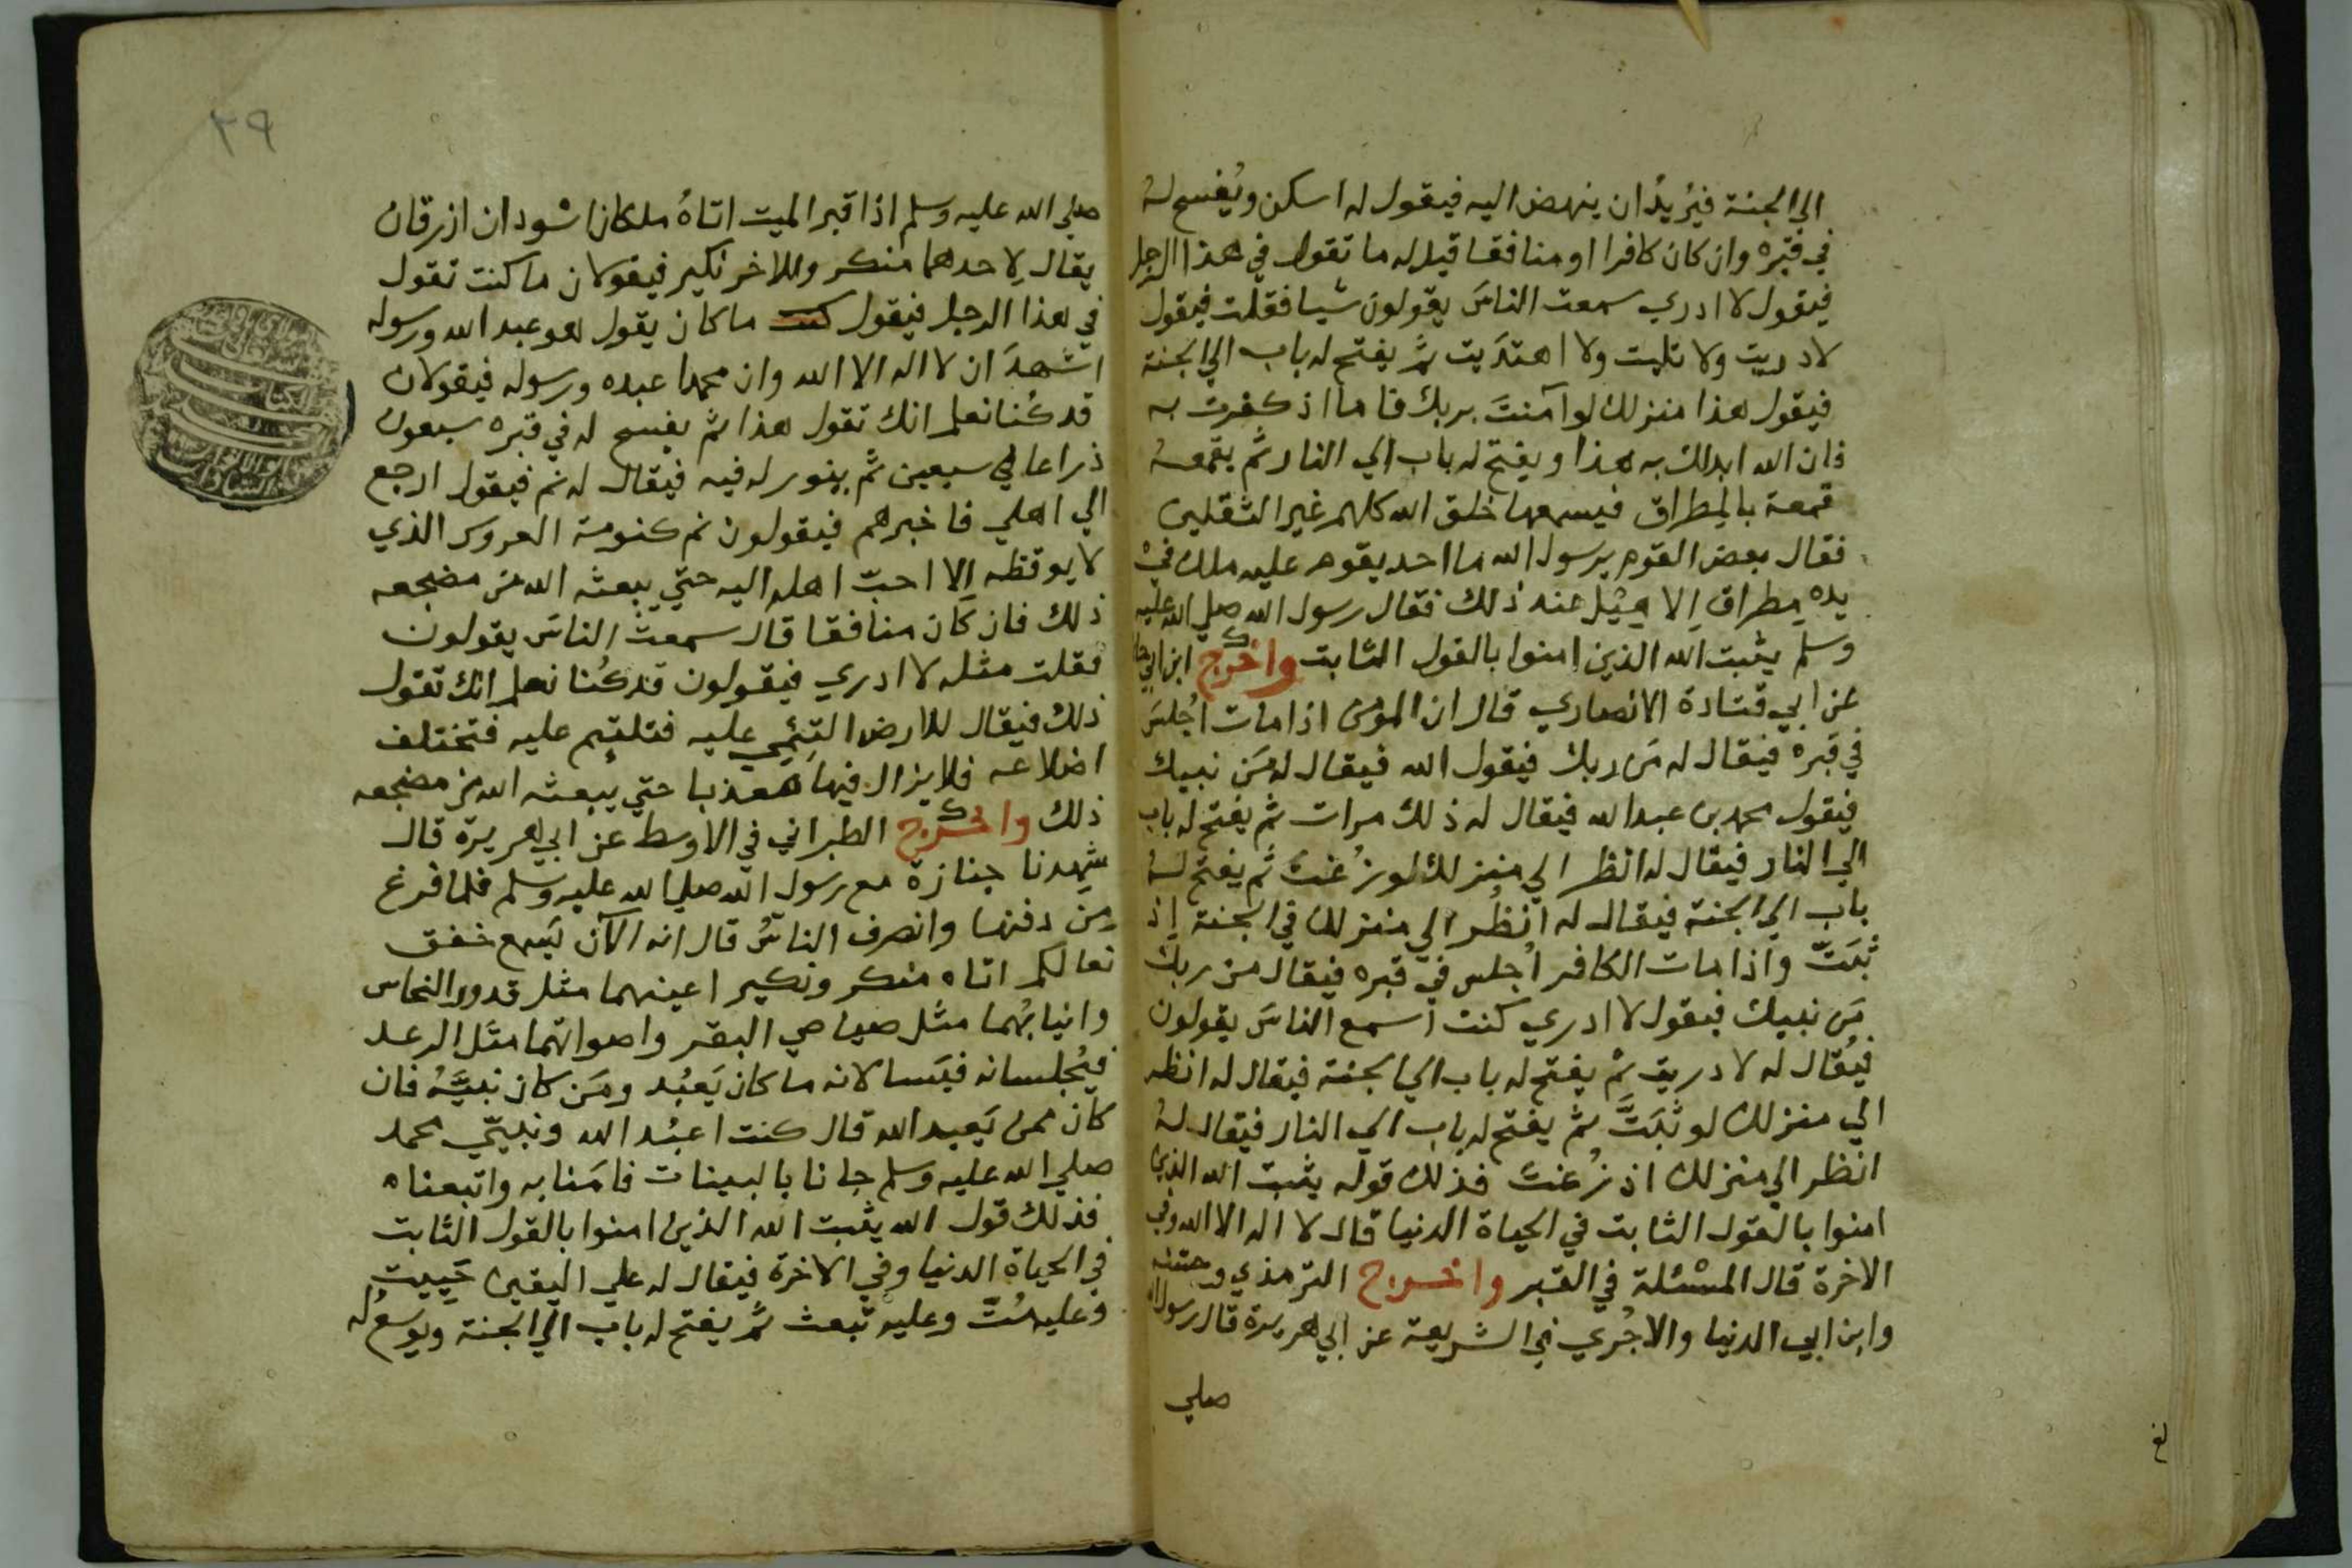 الي الجنة فيُريدُ ان ينهض اليه فيقول له اسكن ويُفسح له
في قبره وان كان كافرا او منافقا قيل له ما تقول في هذا الرجل
فيقول لا ادري سمعت الناسَ يقولون شيا فقلت فيقول
لا دريت ولا تليت ولا اهتدَيت ثم يفتح له باب الي الجنة
فيقول هذا منزلك لو آمنتَ بربك فاما اذ كفرت به
فان الله ابدلك به هذا ويفتح له باب الي النار ثم يقمعه
قمعة بالمِطراق فيسمعها خلق الله كلهم غير الثقلين
فقال بعض القوم يرسول الله ما احد يقوم عليه ملك في
يده مِطراق الا هِيْل عند ذلك فقال رسول الله صلي الله عليه
وسلم يثبت الله الذين امنوا بالقول الثابت واخرج ابن ابي حا
عن ابي قتادة الانصاري قال ان المؤمن اذا مات اُجلسَ
في قبره فيقال له مَن ربك فيقول الله فيقال له مَن نبيك
فيقول محمد بن عبد الله فيقال له ذلك مرات ثم يفتح له باب
الي النار فيقال له انظر الي منزلك لو زُغت ثم يفتح له
باب الي الجنة فيقال له انظُر الي منزلك في الجنة اِذ
ثبَتّ واذا مات الكافر اُجلس في قبره فيقال من ربك
مَن نبيك فيقول لا ادري كنت اسمع الناسَ يقولون
فيُقال له لا دريت ثم يفتح له باب الي الجنة فيقال له انظر
الي منزلك لو ثبَتَّ ثم يفتح له باب الي النار فيقال له
انظر الي منزلك اذ زُغت فذلك قوله يثبت الله الذين
امنوا بالقول الثابت في الحياة الدنيا قال لا اله الا الله وفي
الاخرة قال المسْئلة في القبر واخرج الترمذي وحسنه
وابن ابي الدنيا والاجُري في الشريعة عن ابي هريرة قال رسول الله
صلي
٣٩
صلي الله عليه وسلم اذا قبر الميت اتاهُ ملكان اسودان ازرقان
يقال لِاحدهما منكر وللاخر نكير فيقولان ما كنت تقول
في هذا الرجل فيقول كنت ما كان يقول هو عبد الله ورسوله
اشهدَ ان لا اله الا الله وان محمدا عبده ورسوله فيقولان
قد كُنا نعلم انك تقول هذا ثم يفسح له في قبره سبعون
ذراعا في سبعين ثم ينور له فيه فيقال له نم فيقول ارجع
الي اهلي فاخبرهم فيقولون نم كنومة العروس الذي
لا يوقظه اِلا احبّ اهله اليه حتي يبعثه الله من مضجعه
ذلك فان كَان منافقا قال سمعت الناسَ يقولون
فقلت مثله لا ادري فيقولون قد كُنا نعلم انك تقول
ذلك فيقال للارض التئمي عليه فتلتئم عليه فتختلف
اضلاعه فلا يزال فيها معذبا حتي يبعثه الله من مضجعه
ذلك واخرج الطبراني في الاوسط عن ابي هريرة قال
شهدنا جنازة مع رسول الله صلي الله عليه وسلم فلما فرغ
مِن دفنها وانصرف الناسُ قال انه الآن يَسمع خفق
نعالكم اتاه منكر ونكير اعينهما مثل قدور النحاس
وانيابُهما مثل صياصي البقر واصواتهما مثل الرعد
فيُجلسانه فيَسالانه ما كان يَعبُد ومَن كان نبيَّهُ فان
كان ممن يَعبد الله قال كنت اعبُد الله ونبيّي محمد
صلي الله عليه وسلم جانا بالبينات فامَنا به واتبعناه
فذلك قول الله يثبت الله الذين امنوا بالقول الثابت
في الحياة الدنيا وفي الاخرة فيقال له علي اليقين حَيِيت
وعليه مُتّ وعليه تبعث ثم يفتح له باب الي الجنة ويوسعُ له